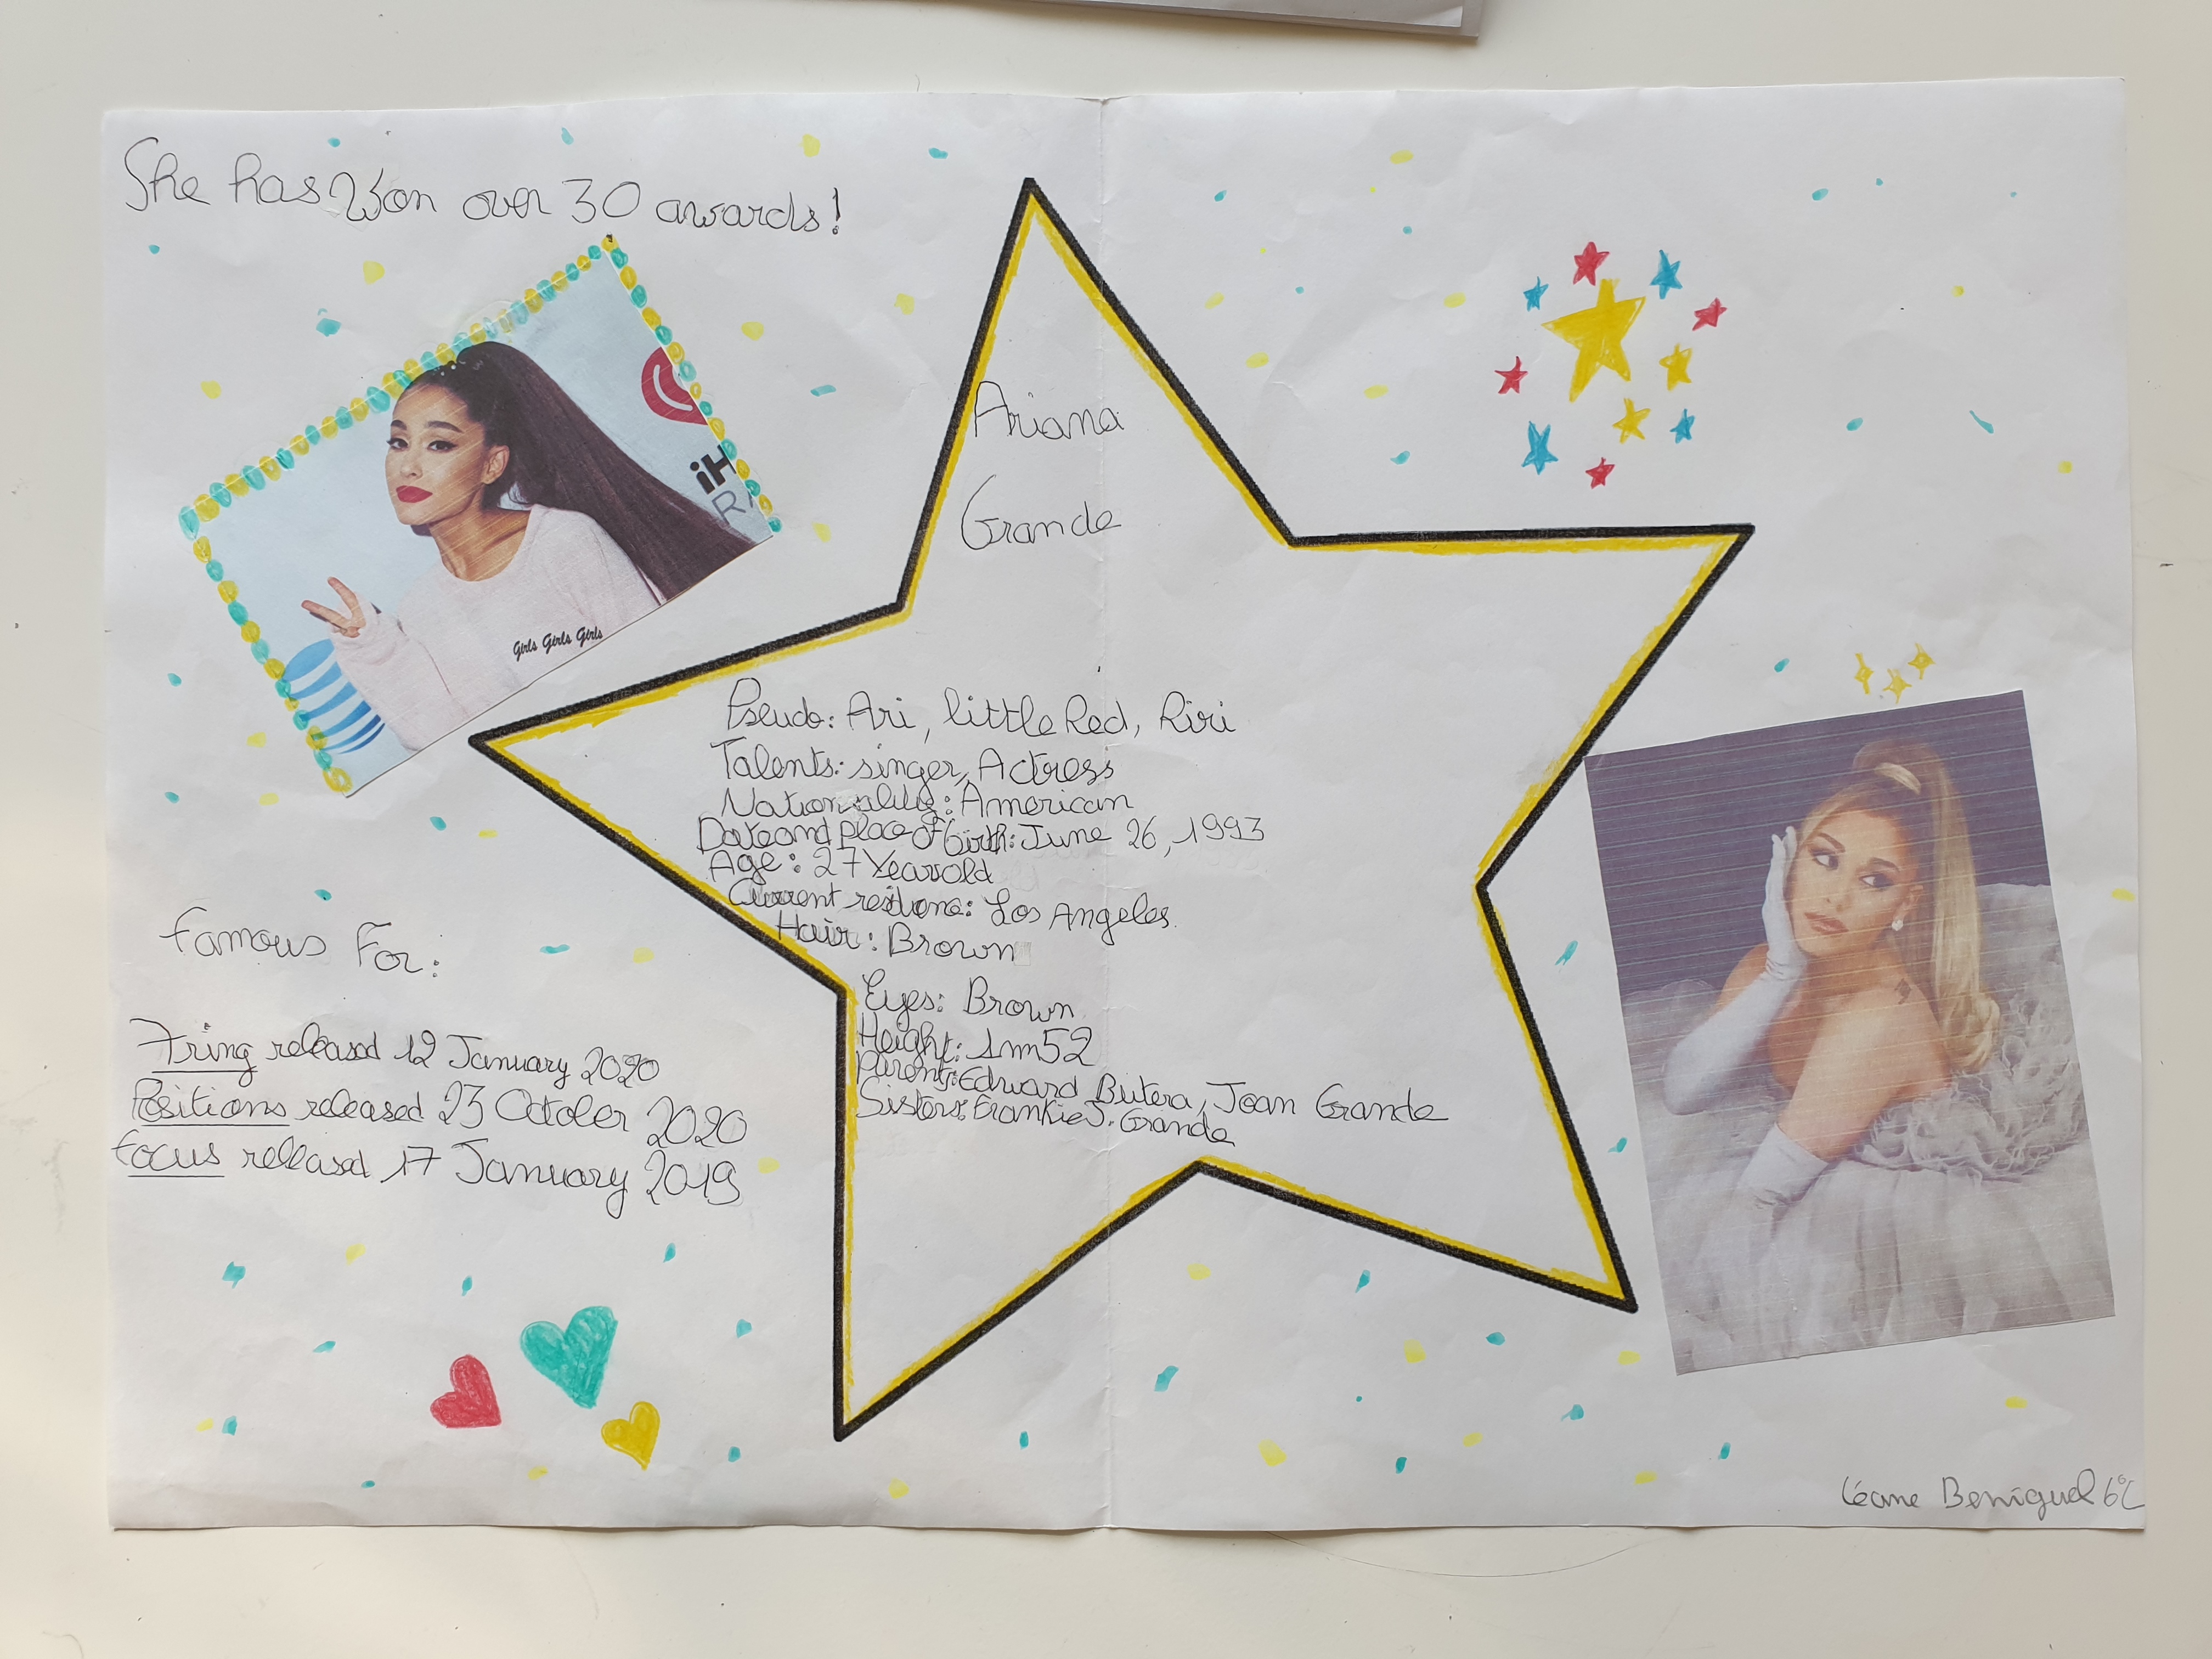 She has Won over 30 awards!
iH
RA
Girls Girls Girls
Ariana
Grande
Pseudo: Ari, little Red, Riri
Talents: singer, Actress
Nationality: American
Date and place of birth: June 26, 1993
Age: 27 Years old
Current residence: Los Angeles
Hair: Brown
Eyes: Brown
Height: 1m52
Parent: Edward Butera, Joan Grande
Sisters: Frankie J. Grande
famous For:
7 ring released 12 January 2020
Positions released 23 October 2020
focus released 17 January 2019
Léane Beniguel 6°C